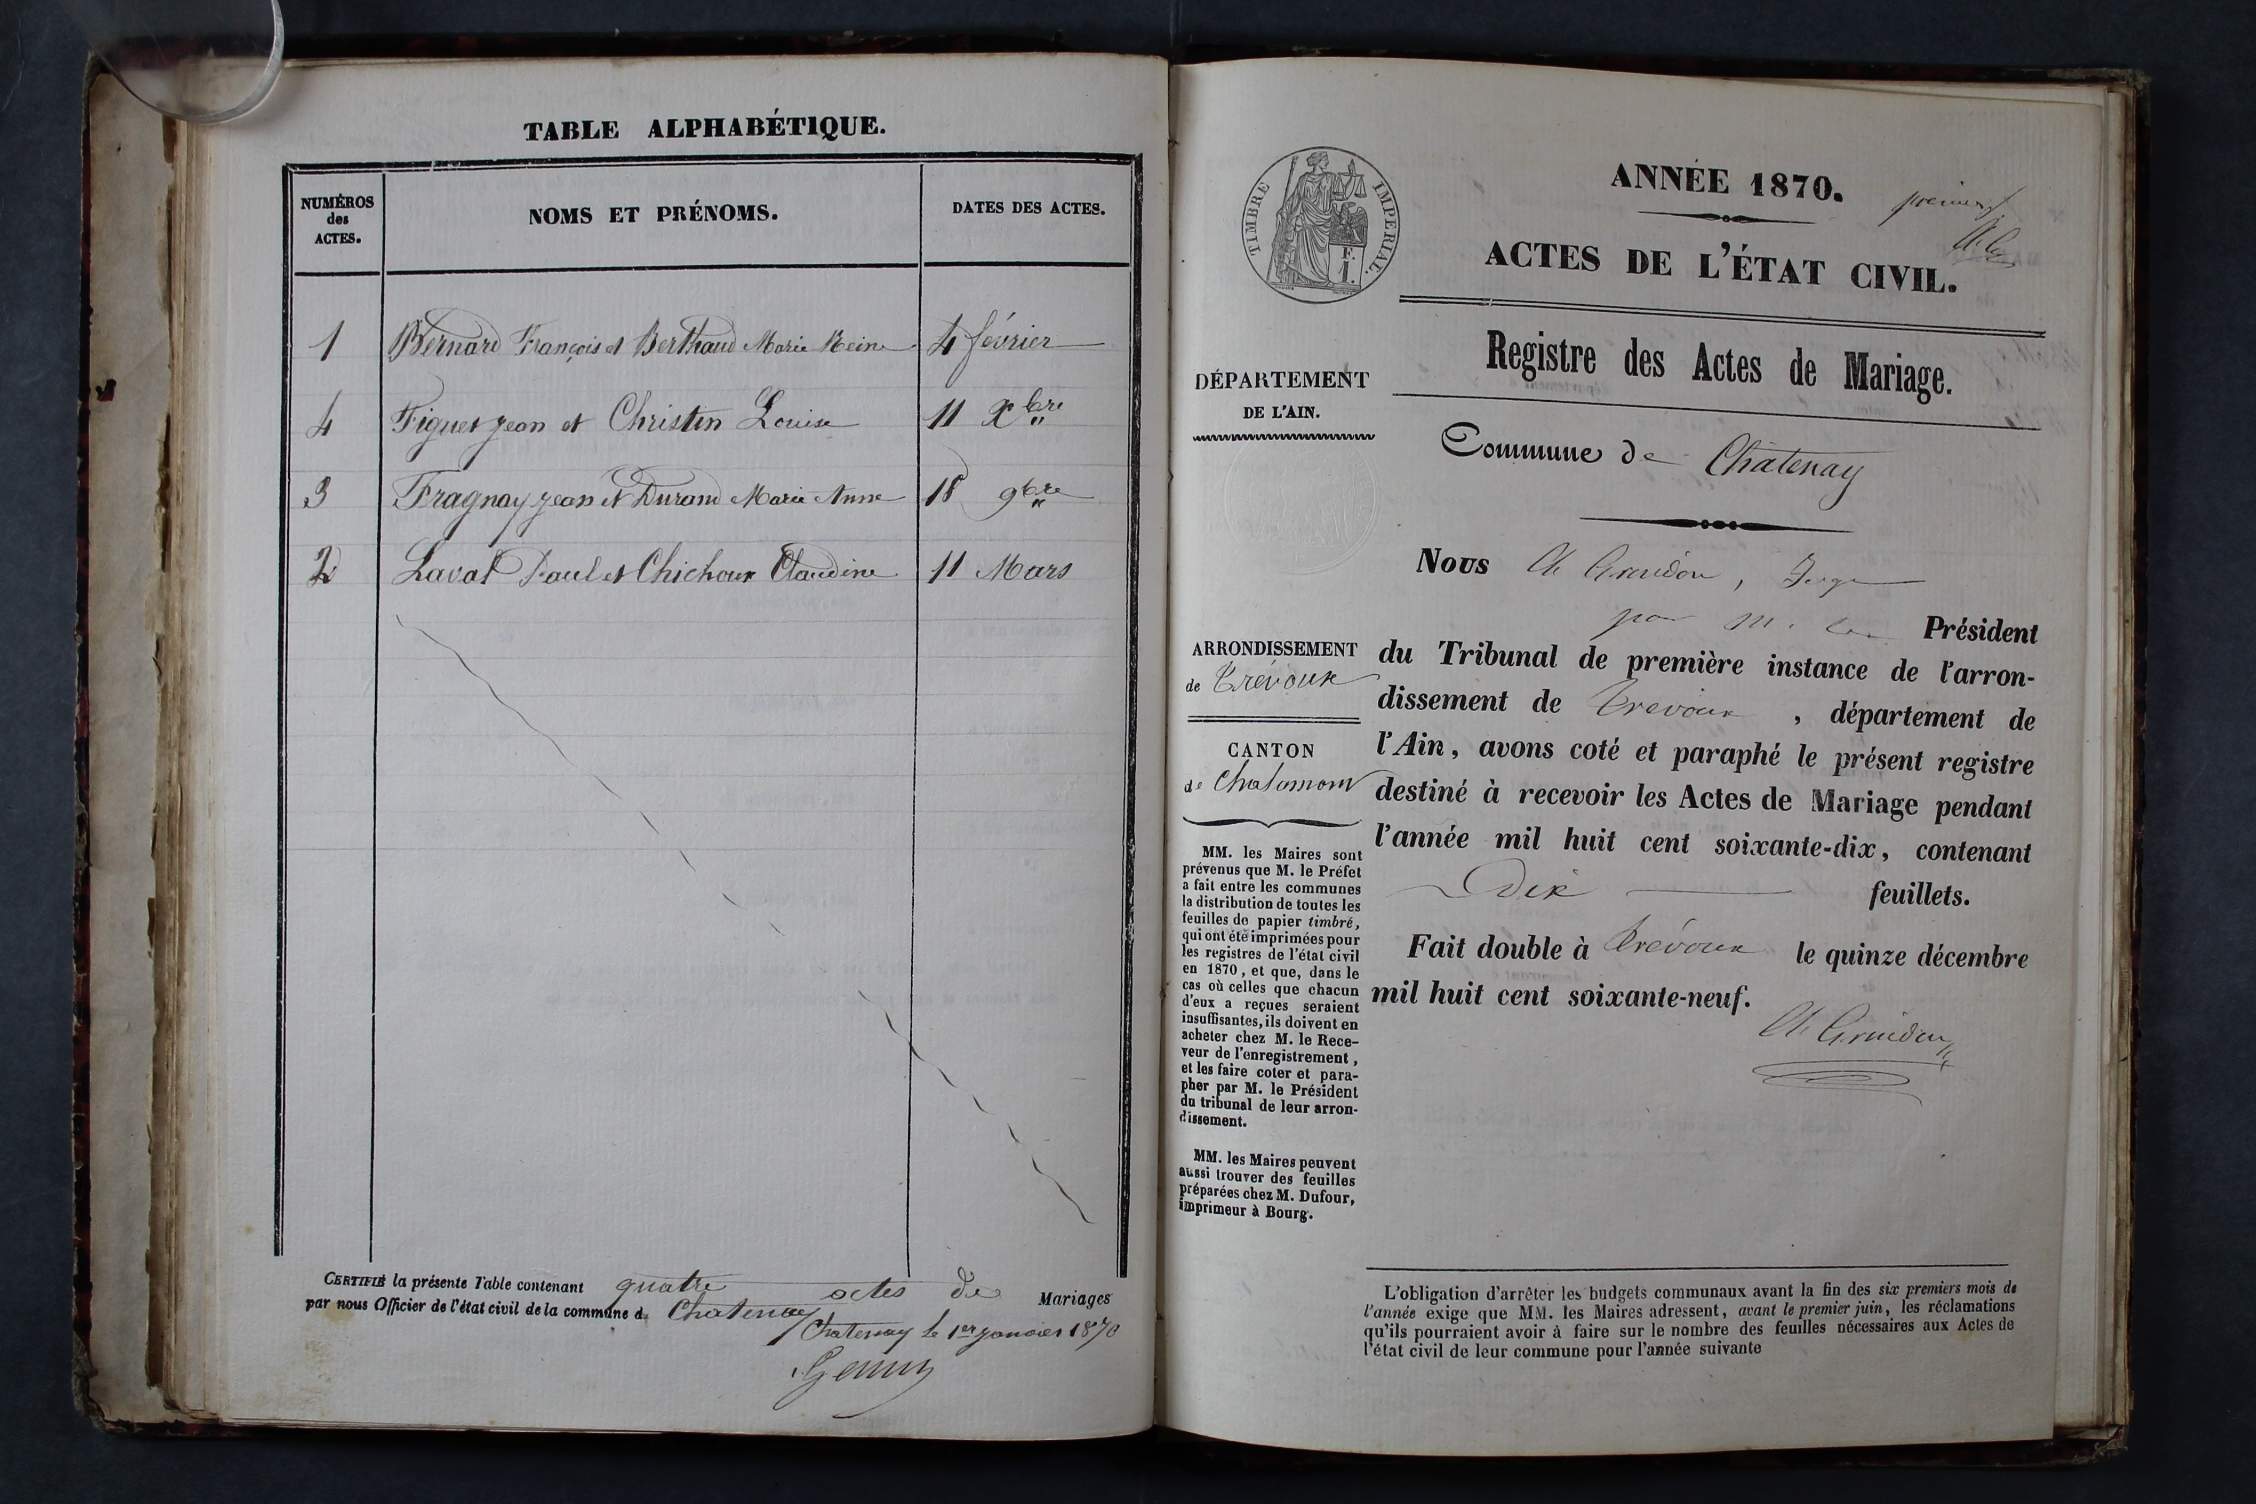 TABLE ALPHABÉTIQUE.
NUMÉROS des ACTES.
NOMS ET PRÉNOMS.
DATES DES ACTES.
1 Bernard François et Berthaud Marie Reine 4 février
4 Figuet Jean et Christin Louise 11 Xbre
3 Fragnay Jean et Durand Marie Anne 18 9bre
2 Laval Paul et Chichoux Claudine 11 Mars
CERTIFIÉ la présente Table contenant quatre actes de Mariages
par nous Officier de l'état civil de la commune de Chatenay
Chatenay le 1er janvier 1870
TIMBRE IMPÉRIAL.
F. 1.
ANNÉE 1870.
premier
ACTES DE L'ÉTAT CIVIL.
Registre des Actes de Mariage.
DÉPARTEMENT
DE L'AIN.
Commune de Châtenay
ARRONDISSEMENT
de Trévoux
CANTON
de Chalamont
MM. les Maires sont
prévenus que M. le Préfet
a fait entre les communes
la distribution de toutes les
feuilles de papier timbré,
qui ont été imprimées pour
les registres de l'état civil
en 1870, et que, dans le
cas où celles que chacun
d'eux a reçues seraient
insuffisantes, ils doivent en
acheter chez M. le Rece-
veur de l'enregistrement,
et les faire coter et para-
pher par M. le Président
du tribunal de leur arron-
dissement.
MM. les Maires peuvent
aussi trouver des feuilles
préparées chez M. Dufour,
imprimeur à Bourg.
Nous Juge
pour M. Président
du Tribunal de première instance de l'arron-
dissement de Trevoux, département de
l'Ain, avons coté et paraphé le présent registre
destiné à recevoir les Actes de Mariage pendant
l'année mil huit cent soixante-dix, contenant
Dix feuillets.
Fait double à Trévoux le quinze décembre
mil huit cent soixante-neuf.
L'obligation d'arrêter les budgets communaux avant la fin des six premiers mois de
l'année exige que MM. les Maires adressent, avant le premier juin, les réclamations
qu'ils pourraient avoir à faire sur le nombre des feuilles nécessaires aux Actes de
l'état civil de leur commune pour l'année suivante